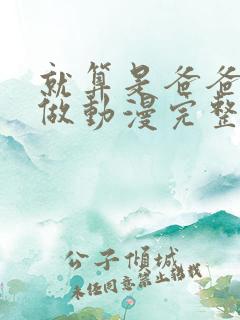 就算是爸爸
做動漫完整
公子傾城
未经同意禁止转载